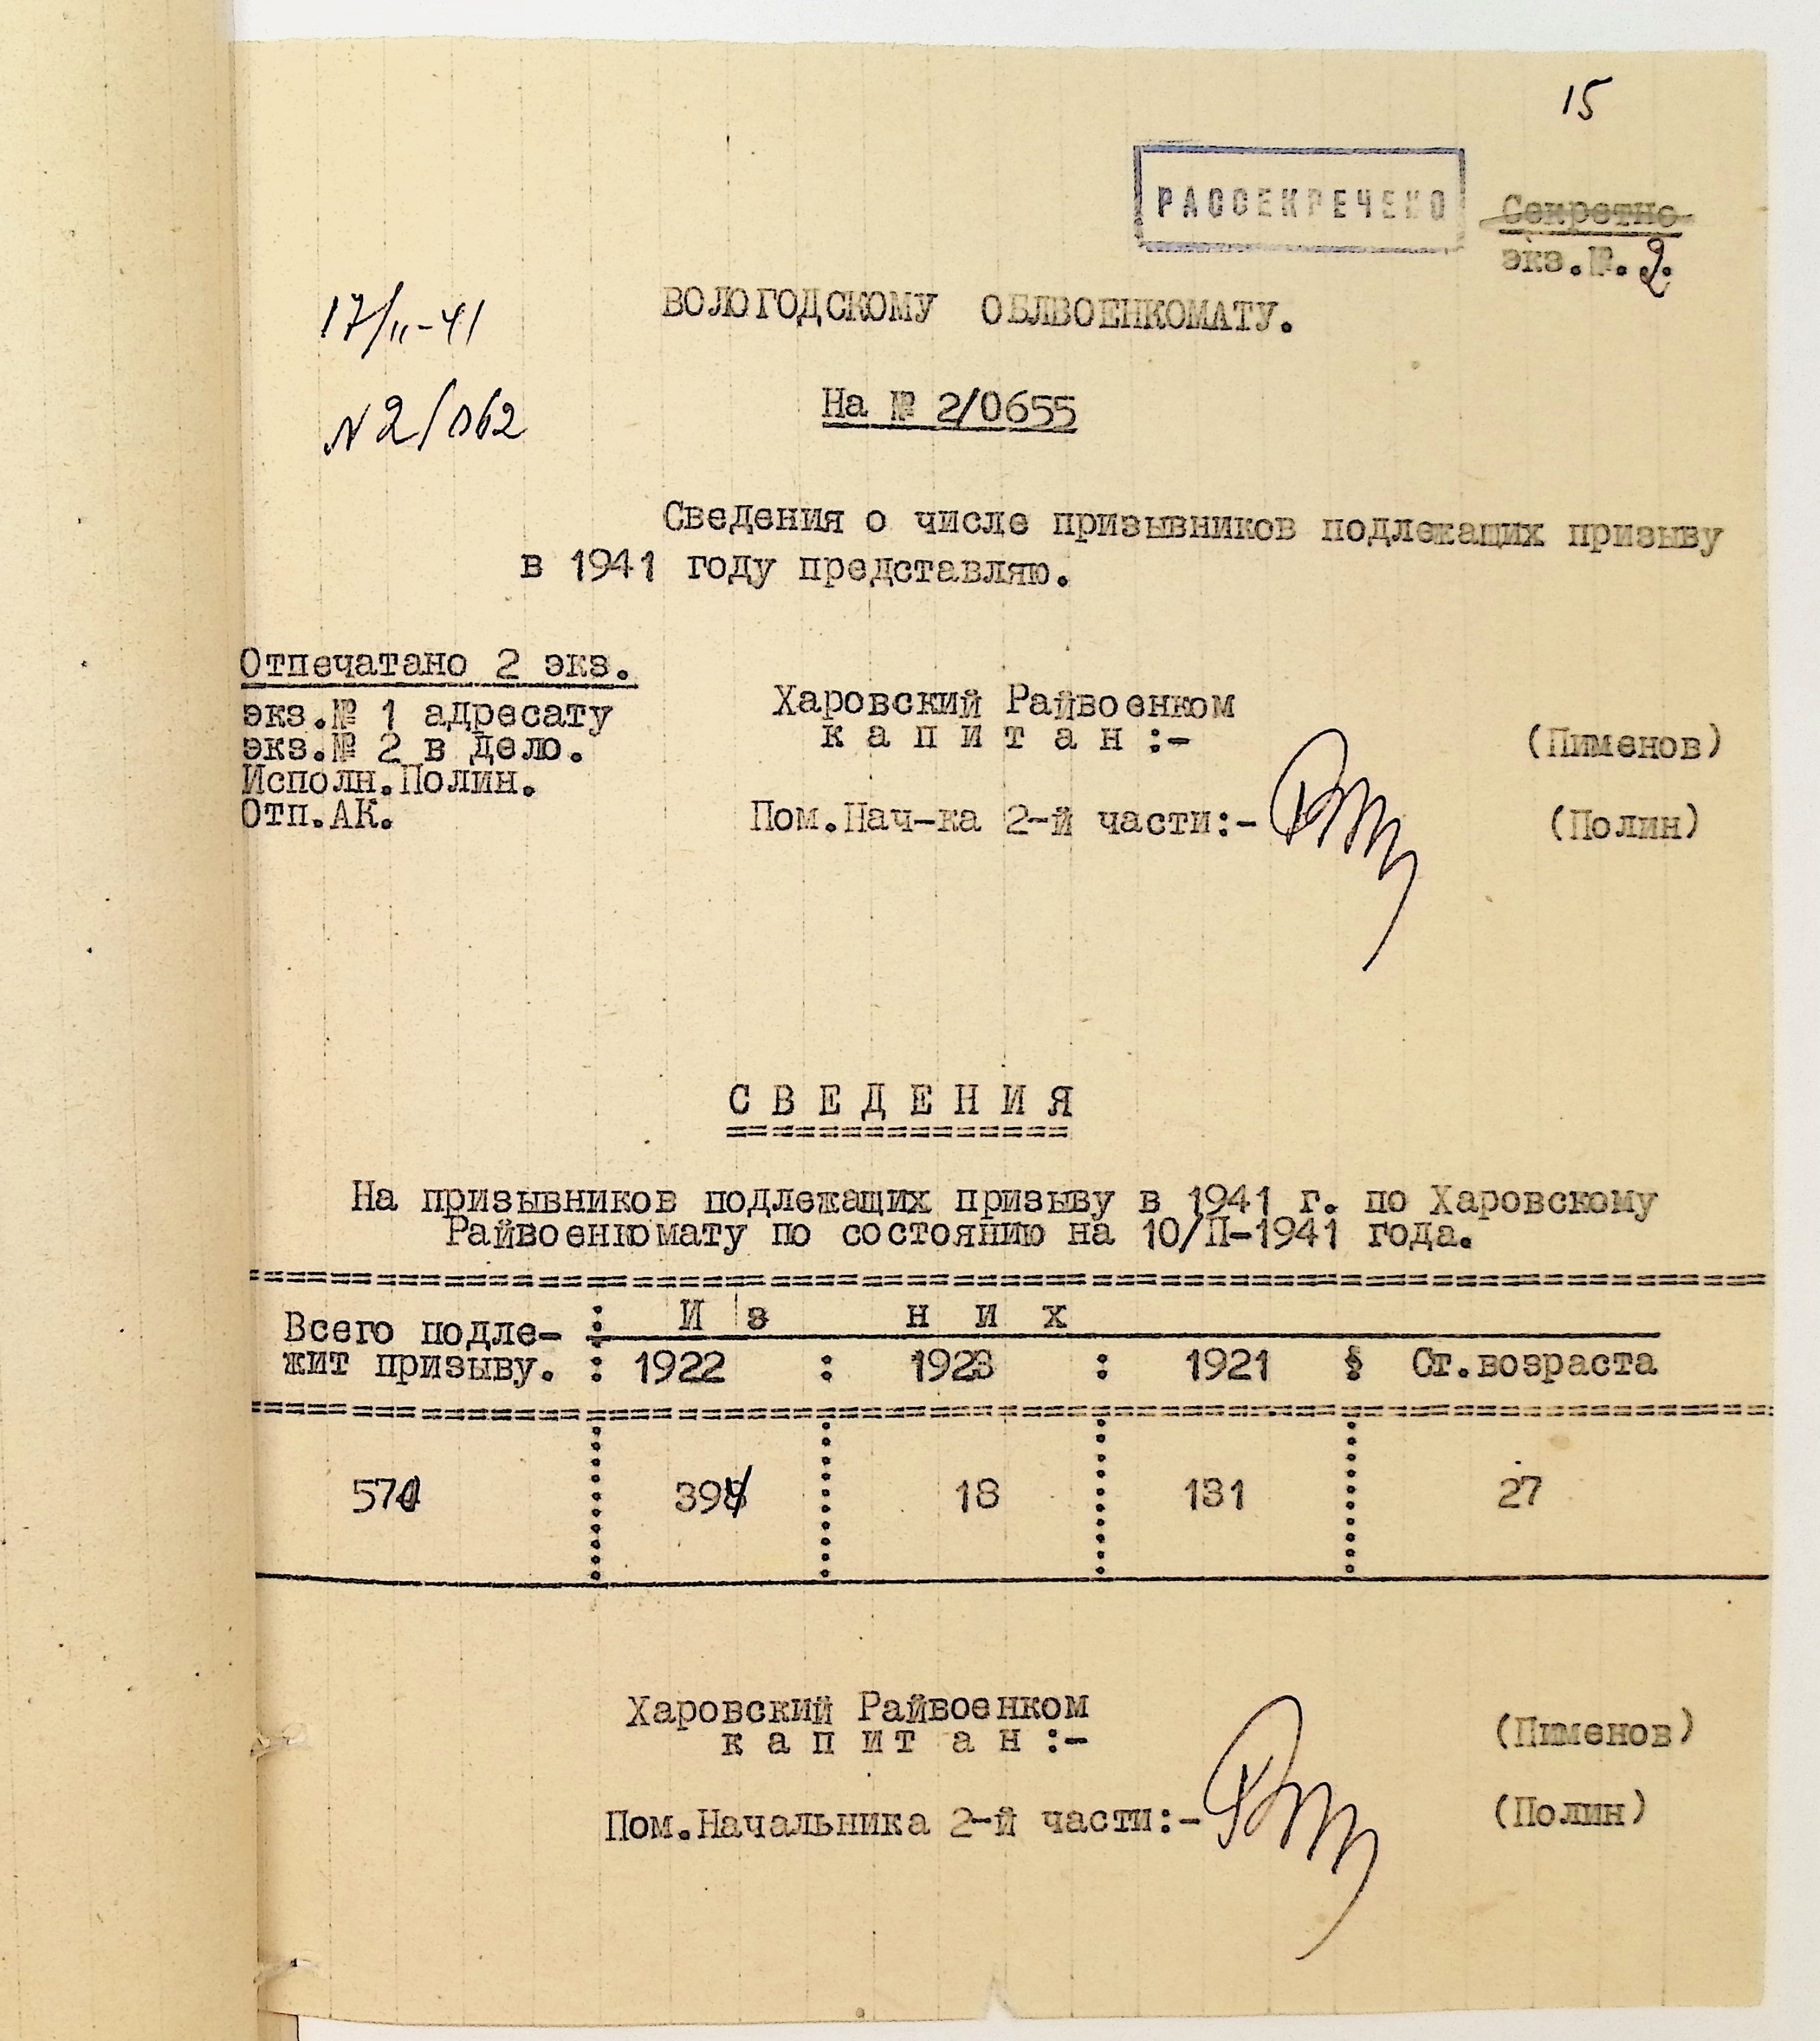 15
РАССЕКРЕЧЕНО
Секретно
экз.№.2.
17/II-41
ВОЛОГОДСКОМУ ОБЛВОЕНКОМАТУ.
N2/062
На № 2/0655
Сведения о числе призывников подлежащих призыву
в 1941 году представляю.
Отпечатано 2 экз.
экз.№ 1 адресату
экз.№ 2 в дело.
Исполн.Полин.
Отп.АК.
Харовский Райвоенком
к а п и т а н :- (Пименов)
Пом.Нач-ка 2-й части:- (Полин)
С В Е Д Е Н И Я
На призывников подлежащих призыву в 1941 г. по Харовскому
Райвоенкомату по состоянию на 10/II-1941 года.
Всего подле- : И з н и х
жит призыву. : 1922 : 1923 : 1921 : Ст.возраста
570 394 18 131 27
Харовский Райвоенком
к а п и т а н :- (Пименов)
Пом.Начальника 2-й части:- (Полин)